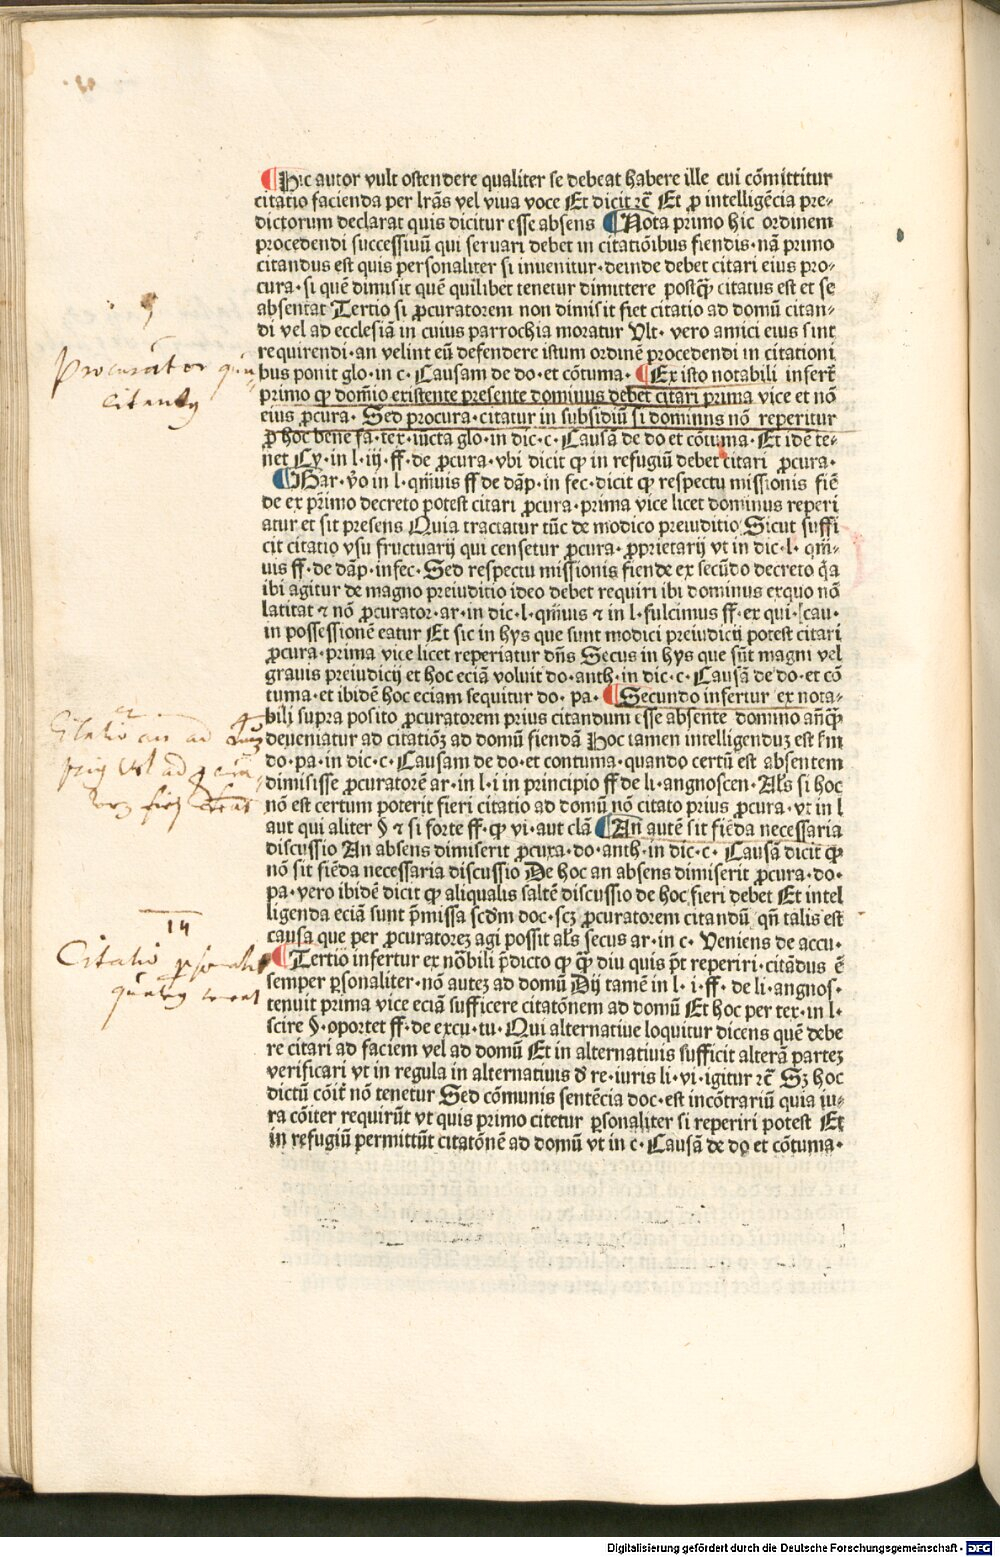 ¶ Hic autor vult ostendere qualiter se debeat habere ille cui cōmittitur
citatio facienda per lrās vel viva voce Et dicit ⁊cͤ Et ꝑ intelligēcia pre⸗
dictorum declarat quis dicitur esse absens ¶ Nota primo hic ordinem
procedendi successiuū qui seruari debet in citatiōibus fiendis · nā primo
citandus est quis personaliter si inuenitur · deinde debet citari eius pro⸗
cura · si quē dimisit quē quilibet tenetur dimittere postꝙ̄ citatus est et se
absentat Tertio si ꝓcuratorem non dimisit fiet citatio ad domū citan⸗
di vel ad ecclesiā in cuius parrochia moratur Vlt · vero amici eius sint
requirendi · an velint eū defendere istum ordinē procedendi in citationi
bus ponit glo · in c · Causam de do · et cōtuma · ¶ Ex isto notabili infert̄
primo ꝙ domīo existente presente dominus debet citari prima vice et nō
eius ꝓcura · Sed procura · citatur in subsidiū si dominus nō reperitur
ꝓ hoc bene fa · tex · iuncta glo · in dic · c · Causā de do et cōtuma · Et idē te⸗
net Cy · in l · iij · ff · de ꝓcura · vbi dicit ꝙ in refugiū debet citari ꝓcura ·
¶ Bar · v̄o in l · qm̄uis ff de dāp · in fec · dicit ꝙ respectu missionis fiē
de ex pr̄imo decreto potest citari ꝓcura · prima vice licet dominus reperi
atur et sit presens Quia tractatur tūc de modico preiuditio Sicut suffi
cit citatio vsu fructuarij qui censetur ꝓcura · ꝓprietarij vt in dic · l · qm̄⸗
uis ff · de dāp · infec · Sed respectu missionis fiende ex secūdo decreto q̄a
ibi agitur de magno preiuditio ideo debet requiri ibi dominus exquo nō
latitat ⁊ nō ꝓcurator · ar · in dic · l · qm̄uis ⁊ in l · fulcimus ff · ex qui · cau ·
in possessionē eatur Et sic in hys que sunt modici preiudicij potest citari
ꝓcura · prima vice licet reperiatur dn̄s Secus in hys que sūt magni vel
grauis preiudicij et hoc eciā voluit do · anth · in dic · c · Causā de do · et cō
tuma · et ibidē hoc eciam sequitur do · pa · ¶ Secundo infertur ex nota⸗
bili supra posito ꝓcuratorem prius citandum esse absente domino an̄ꝙ̄
deueniatur ad citatiōꝫ ad domū fiendā Hoc tamen intelligenduꝫ est ẜm
do · pa · in dic · c · Causam de do · et contuma · quando certū est absentem
dimisisse ꝓcuratorē ar · in l · i in principio ff de li · angnoscen · Al̄s si hoc
nō est certum poterit fieri citatio ad domū nō citato prius ꝓcura · vt in l
aut qui aliter § ⁊ si forte ff · ꝙ vi · aut clā ¶ An autē sit fiēda necessaria
discussio An absens dimiserit ꝓcura · do · anth · in dic · c · Causā dicit ꝙ
nō sit fiēda necessaria discussio De hoc an absens dimiserit ꝓcura · do ·
pa · vero ibidē dicit ꝙ aliqualis saltē discussio de hoc fieri debet Et intel
ligenda eciā sunt p̄missa scd̄m doc · scꝫ ꝓcuratorem citandū qn̄ talis est
causa que per ꝓcuratoreꝫ agi possit al̄s secus ar · in c · Veniens de accu ·
¶ Tertio infertur ex nōbili p̄dicto ꝙ ꝙ̄ diu quis p̄t reperiri · citādus ē
semper ꝑsonaliter · nō auteꝫ ad domū Dij tamē in l · i · ff · de li · angnos ·
tenuit prima vice eciā sufficere citatōnem ad domū Et hoc per tex · in l ·
scire § · oportet ff · de excu · tu · Qui alternatiue loquitur dicens quē debe
re citari ad faciem vel ad domū Et in alternatiuis sufficit alterā parteꝫ
verificari vt in regula in alternatiuis d̄ re · iuris li · vi · igitur ⁊cͤ Sꝫ hoc
dictū cōit̄ nō tenetur Sed cōmunis sentēcia doc · est incōtrariū quia iu⸗
ra cōiter requirūt vt quis primo citetur ꝑsonaliter si reperiri potest Et
in refugiū permittūt citatōnē ad domū vt in c · Causā de do et cōtuma ·
Procurator
14
Citatio
Digitalisierung gefördert durch die Deutsche Forschungsgemeinschaft - DFG